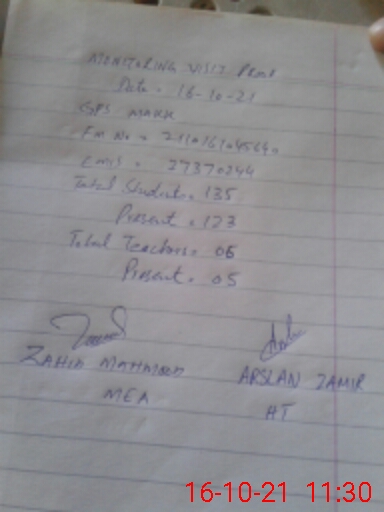 MONITORING VISIT PROOF
Date = 16-10-21
GPS MAKK
EMIS = 37370244
Total Students = 135
Present = 123
Total Teachers = 06
Present = 05
ZAHID MAHMOOD
ARSLAN ZAMIR
MEA
HT
16-10-21 11:30